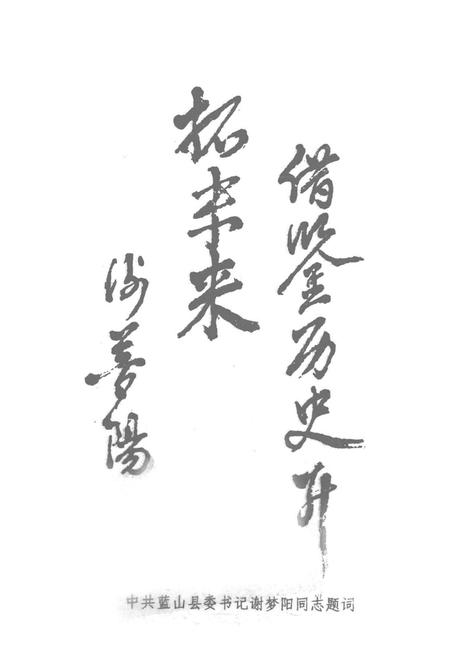 借鉴历史开
拓未来
谢梦阳
中共蓝山县委书记谢梦阳同志题词